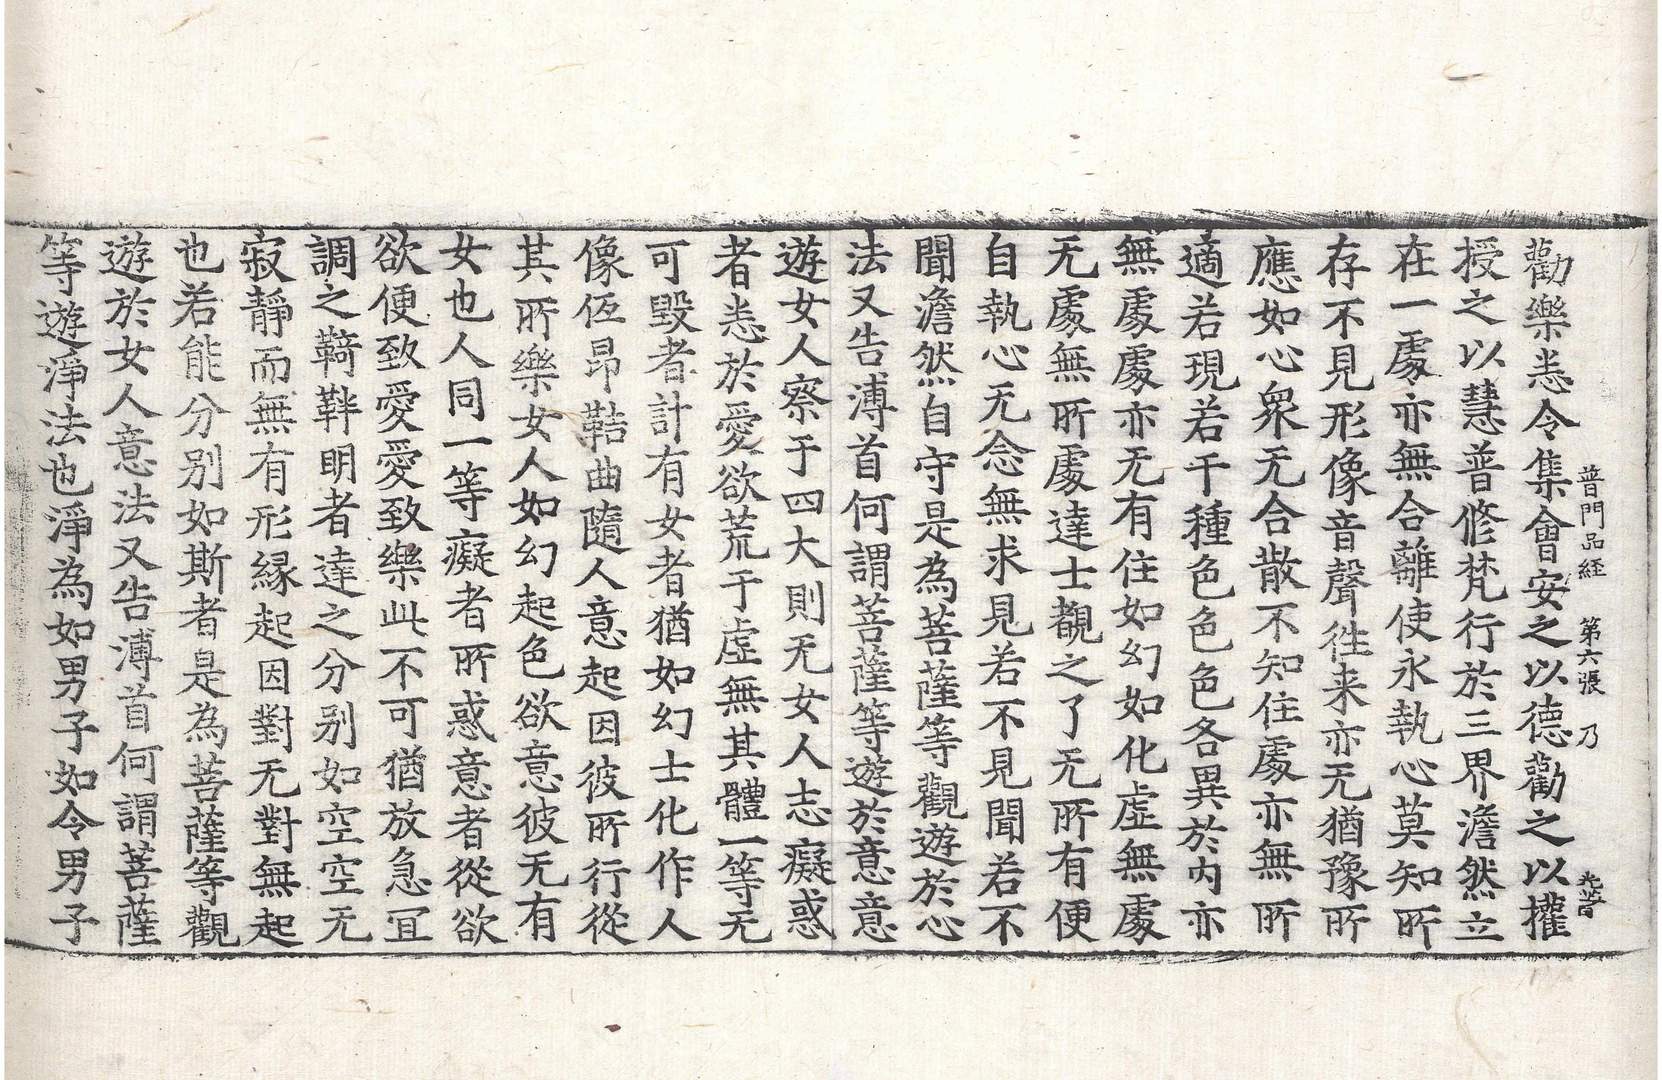 普門品経　第六張　乃
勸樂恙令集會安之以德勸之以權
授之以慧普修梵行於三界澹然立
在一處亦無合離使永執心莫知所
存不見形像音聲徃来亦无猶豫所
應如心衆无合散不知住處亦無所
適若現若干種色色色各異於内亦
無處處亦无有住如幻如化虚無處
无處無所處達士覩之了无所有便
自執心无念無求見若不見聞若不
聞澹然自守是為菩薩等觀遊於心
法又告溥首何謂菩薩等遊於意意
遊女人察于四大則无女人志癡惑
者恙於愛欲荒于虚無其體一等无
可毀者計有女者猶如幻士化作人
像佤昂鞊曲隨人意起因彼所行從
其所樂女人如幻起色欲意彼无有
女也人同一等癡者所惑意者從欲
欲便致愛愛致樂此不可猶放急冝
調之鞯靽明者達之分别如空空无
寂靜而無有形縁起因對无對無起
也若能分别如斯者是為菩薩等觀
遊於女人意法又告溥首何謂菩薩
等遊淨法也淨為如男子如令男子